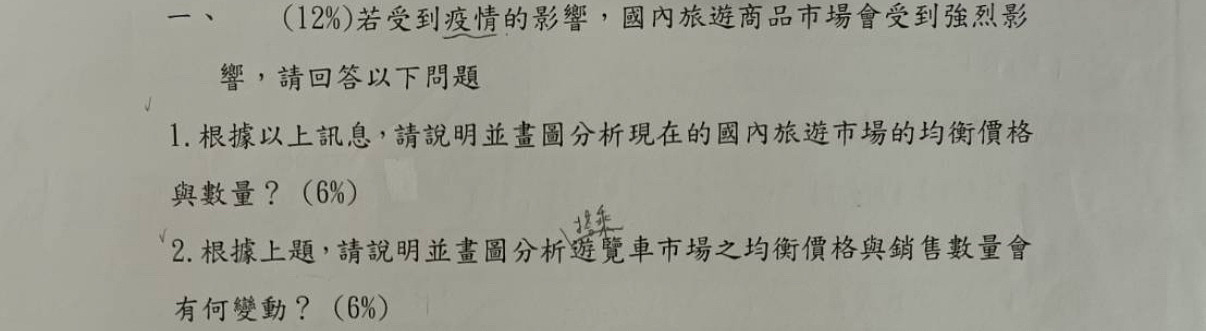 一、 (12%)若受到疫情的影響，國內旅遊商品市場會受到強烈影
響，請回答以下問題
1.根據以上訊息，請說明並畫圖分析現在的國內旅遊市場的均衡價格
與數量？（6%）
搭乘
2.根據上題，請說明並畫圖分析遊覽車市場之均衡價格與銷售數量會
有何變動？（6%）